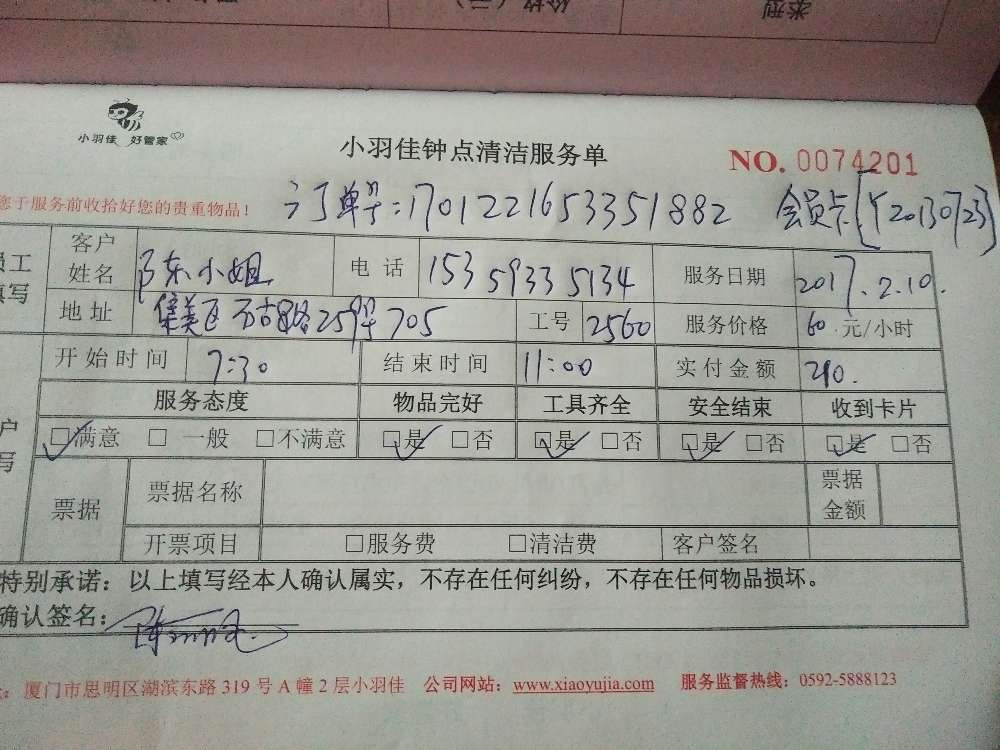 类型
价格(元)
小羽佳 好管家
小羽佳钟点清洁服务单
NO. 0074201
您于服务前收拾好您的贵重物品！
订单号：170122165335 1882 会员卡[Y20130723]
员工填写
客户姓名 陈小姐 电话 15359335134 服务日期 2017.2.10.
地址 集美区 石古路25号705 工号 2560 服务价格 60 元/小时
开始时间 7:30 结束时间 11:00 实付金额 210.
服务态度 物品完好 工具齐全 安全结束 收到卡片
户写
☑满意 □ 一般 □不满意 ☑是 □否 ☑是 □否 ☑是 □否 ☑是 □否
票据 票据名称 票据金额
开票项目 □服务费 □清洁费 客户签名
特别承诺：以上填写经本人确认属实，不存在任何纠纷，不存在任何物品损坏。
确认签名：
厦门市思明区湖滨东路 319 号 A 幢 2 层小羽佳 公司网站：www.xiaoyujia.com 服务监督热线：0592-5888123